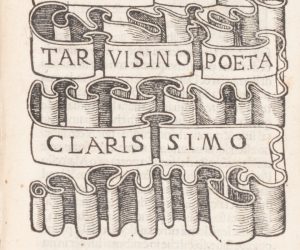 TARVISINO POETA
CLARISSIMO